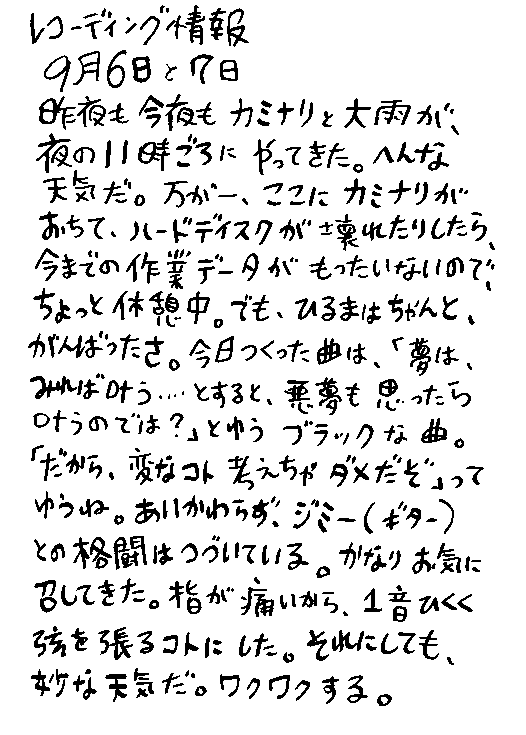 レコーディング情報
9月6日と7日
昨夜も今夜もカミナリと大雨が、
夜の11時ごろにやってきた。へんな
天気だ。万が一、ここにカミナリが
おちて、ハードディスクが壊れたりしたら、
今までの作業データがもったいないので、
ちょっと休憩中。でも、ひるまはちゃんと、
がんばったさ。今日つくった曲は、「夢は、
みれば叶う‥‥とすると、悪夢も思ったら
叶うのでは?」とゆうブラックな曲。
「だから、変なコト考えちゃダメだぞ」って
ゆうね。あいかわらず、ジミー(ギター)
との格闘はつづいている。かなりお気に
召してきた。指が痛いから、1音ひくく
弦を張るコトにした。それにしても、
妙な天気だ。ワクワクする。